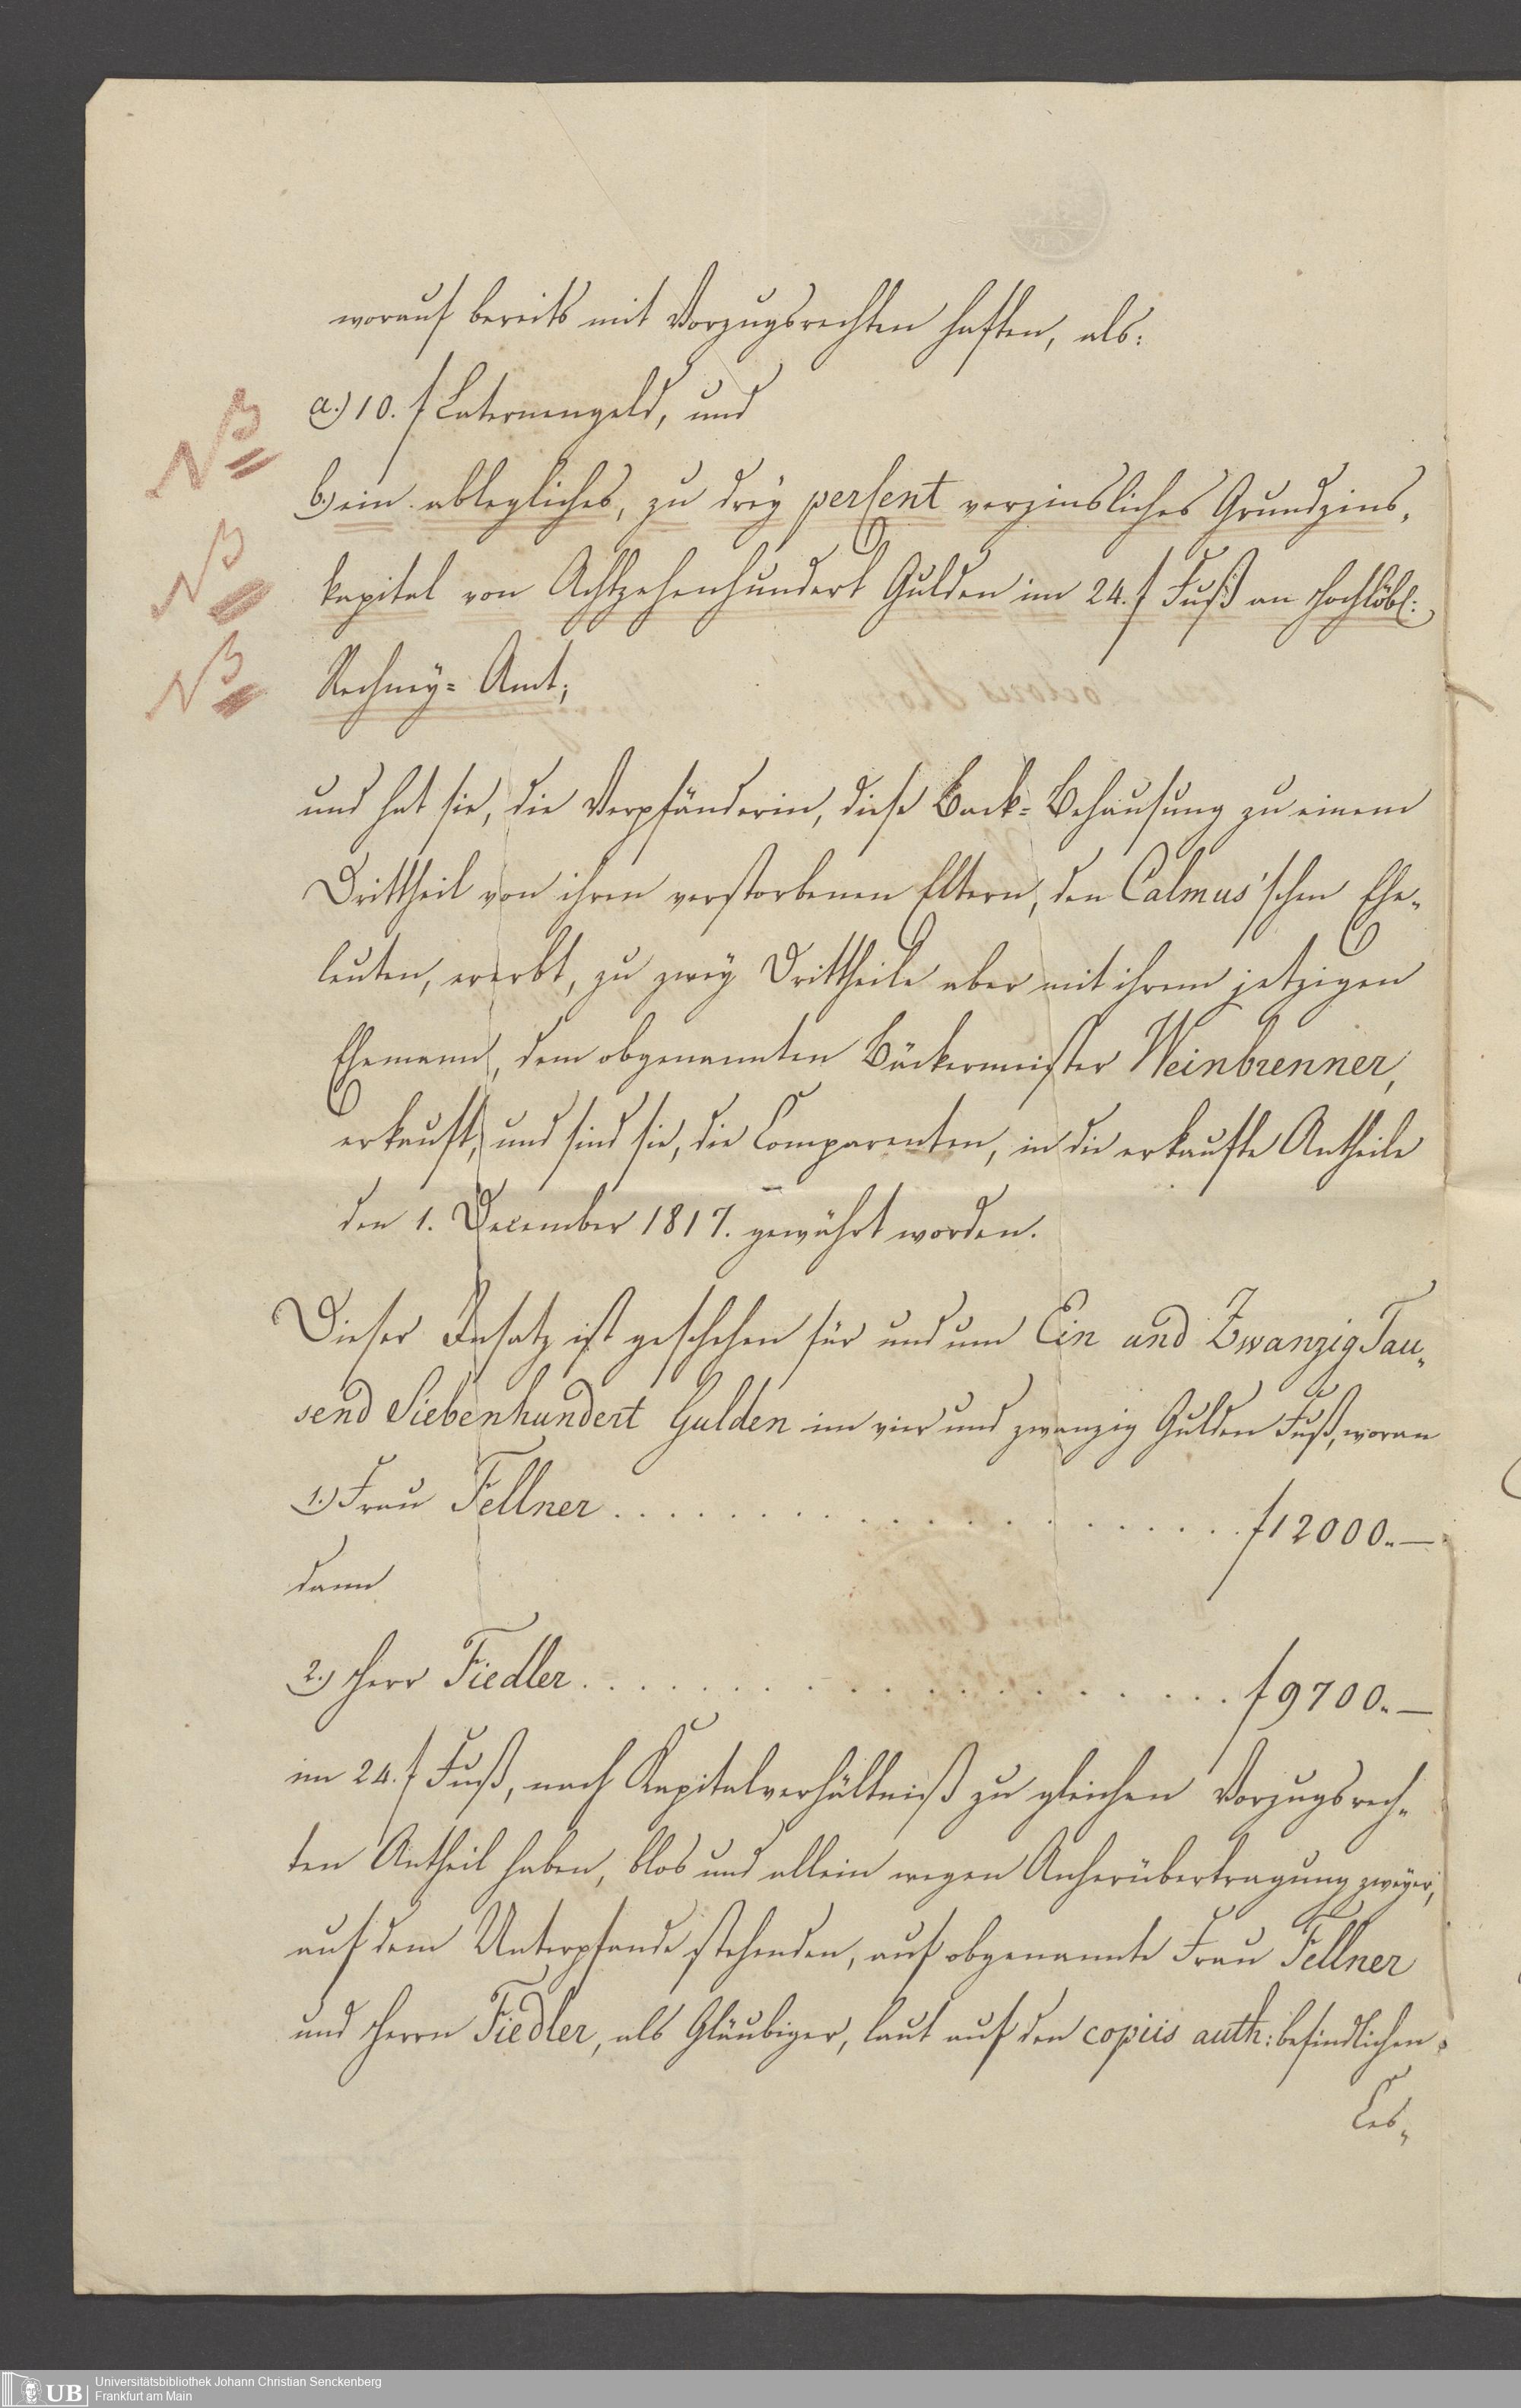 worauf bereits mit Vorzugsrechten haften, als:
NB a.) 10. f Laternengeld, und
b.) ein ablegliches, zu drey perCent verzinsliches Grundzins„
NB kapital von Achtzehenhundert Gulden im 24. f Fuß an Hochlöbl:
NB Rechney= Amt;
und hat sie, die Verpfänderin, diese Back= Behausung zu einem
Drittheil von ihren verstorbenen Eltern, den Calmus'schen Ehe„
leuten, ererbt, zu zwey Drittheile aber mit ihrem jetzigen
Ehemann, dem obgenannten Bäckermeister Weinbrenner,
erkauft, und sind sie, die Comparenten, in die erkaufte Antheile
den 1. December 1817. gewährt worden.
Dieser Insatz ist geschehen für und um Ein and Zwanzig Tau„
send Siebenhundert Gulden im vier und zwanzig Gulden Fuß, woran
1.) Frau Fellner . . . . . . . . . . . . . . . . . . . . . . f 12000.„—
dann
2.) Herr Fiedler . . . . . . . . . . . . . . . . . . . . . . f 9700.„—
im 24. f Fuß, nach Kapitalverhältniß zu gleichen Vorzugsrech„
ten Antheil haben, blos und allein wegen Anherübertragung zweyer,
auf dem Unterpfande stehenden, auf obgenannte Frau Fellner
und Herrn Fiedler, als Gläubiger, laut auf den copiis auth: befindlichen
Ces„
UB Universitätsbibliothek Johann Christian Senckenberg
Frankfurt am Main